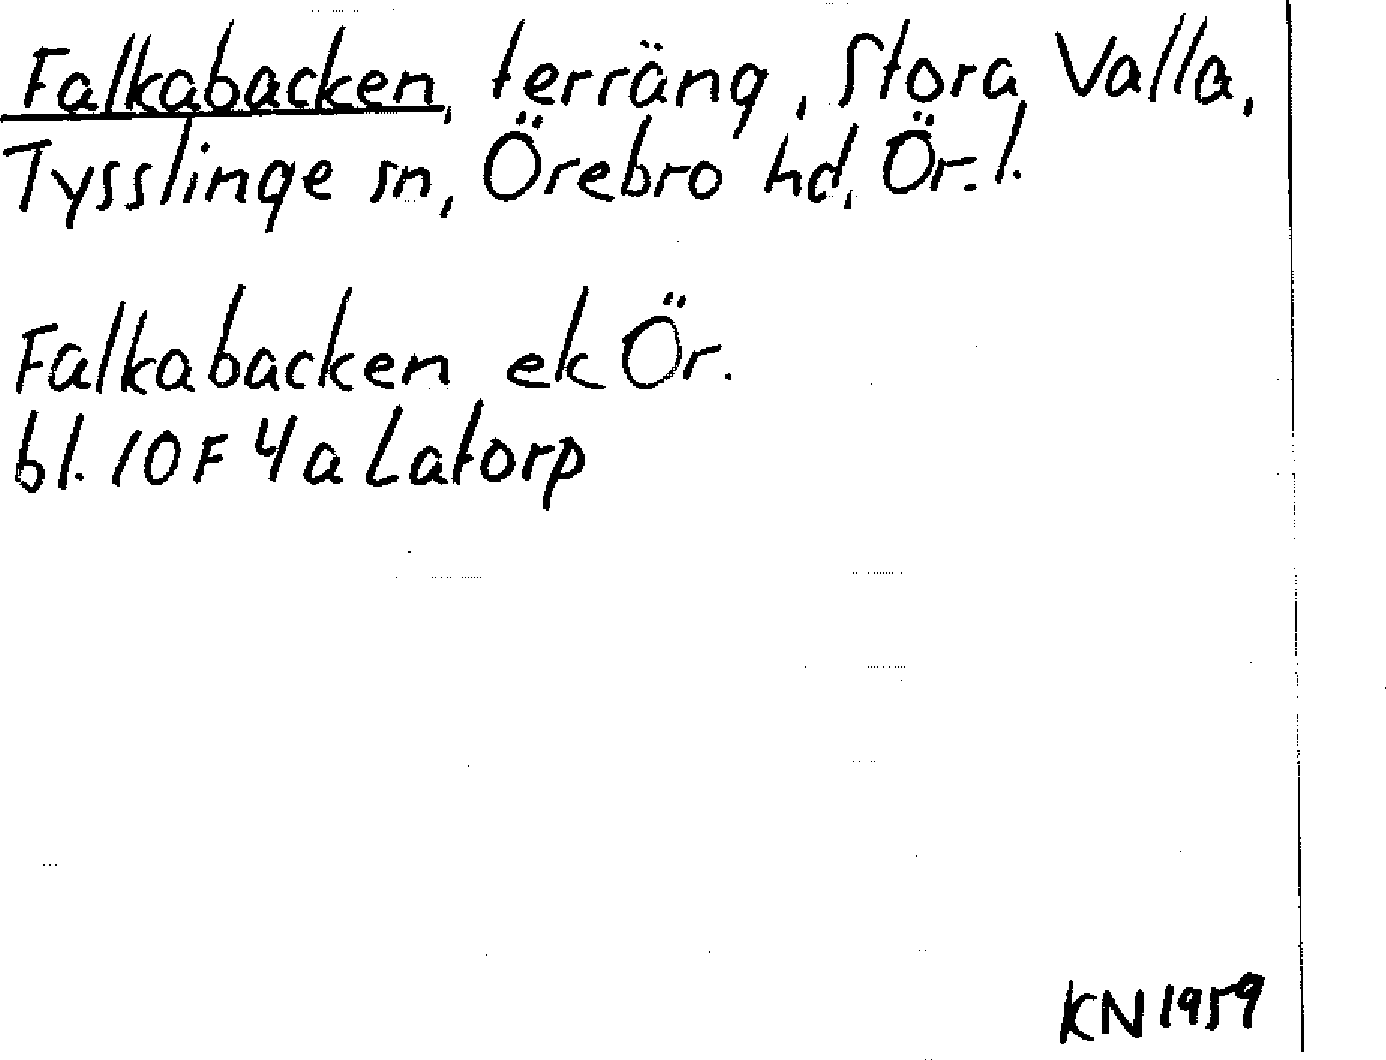 Falkabacken, terräng, Stora Valla,
Tysslinge sn, Örebro hd, Ör. l.
Falkabacken ek Ör.
bl. 10F 4a Latorp
KN 1959